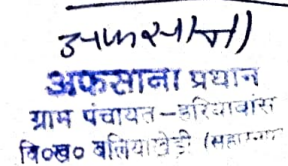 अफसाना
अफसाना प्रधान
ग्राम पंचायत-हरियावांस
वि०ख० बलियाखेड़ी (सहारनपुर